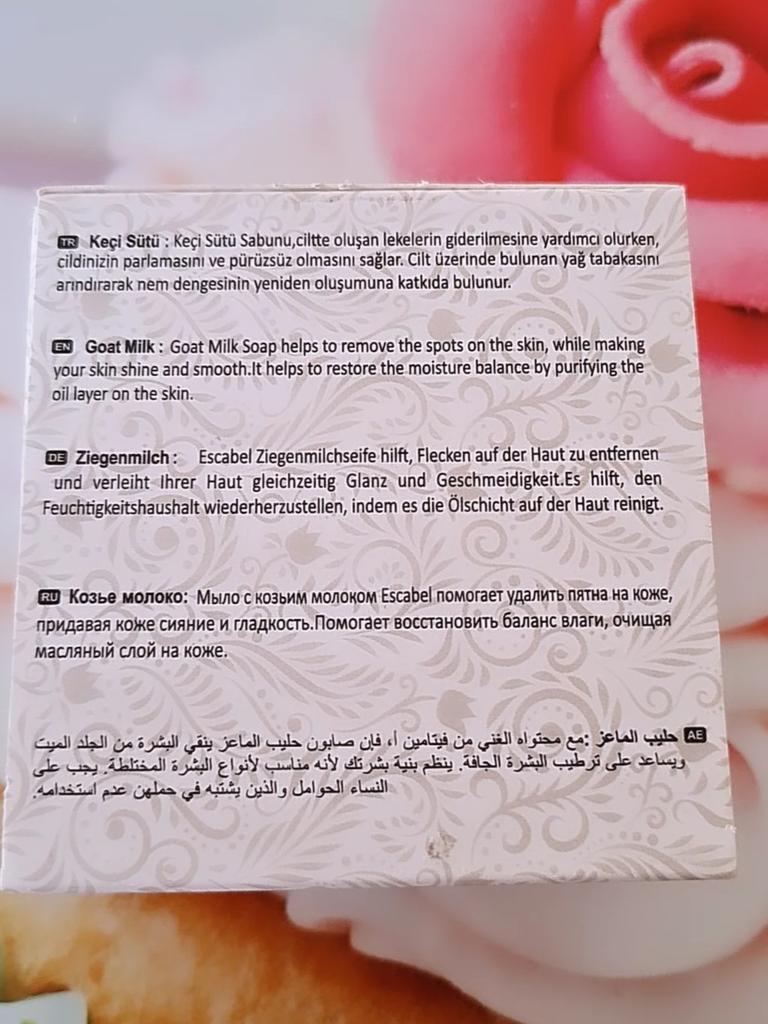 TR Keçi Sütü : Keçi Sütü Sabunu,ciltte oluşan lekelerin giderilmesine yardımcı olurken,
cildinizin parlamasını ve pürüzsüz olmasını sağlar. Cilt üzerinde bulunan yağ tabakasını
arındırarak nem dengesinin yeniden oluşumuna katkıda bulunur.
EN Goat Milk : Goat Milk Soap helps to remove the spots on the skin, while making
your skin shine and smooth.It helps to restore the moisture balance by purifying the
oil layer on the skin.
DE Ziegenmilch : Escabel Ziegenmilchseife hilft, Flecken auf der Haut zu entfernen
und verleiht Ihrer Haut gleichzeitig Glanz und Geschmeidigkeit.Es hilft, den
Feuchtigkeitshaushalt wiederherzustellen, indem es die Ölschicht auf der Haut reinigt.
RU Козье молоко: Мыло с козьим молоком Escabel помогает удалить пятна на коже,
придавая коже сияние и гладкость.Помогает восстановить баланс влаги, очищая
масляный слой на коже.
AE حليب الماعز :مع محتواه الغني من فيتامين أ، فإن صابون حليب الماعز ينقي البشرة من الجلد الميت
ويساعد على ترطيب البشرة الجافة. ينظم بنية بشرتك لأنه مناسب لأنواع البشرة المختلطة. يجب على
النساء الحوامل والذين يشتبه في حملهن عدم استخدامه.